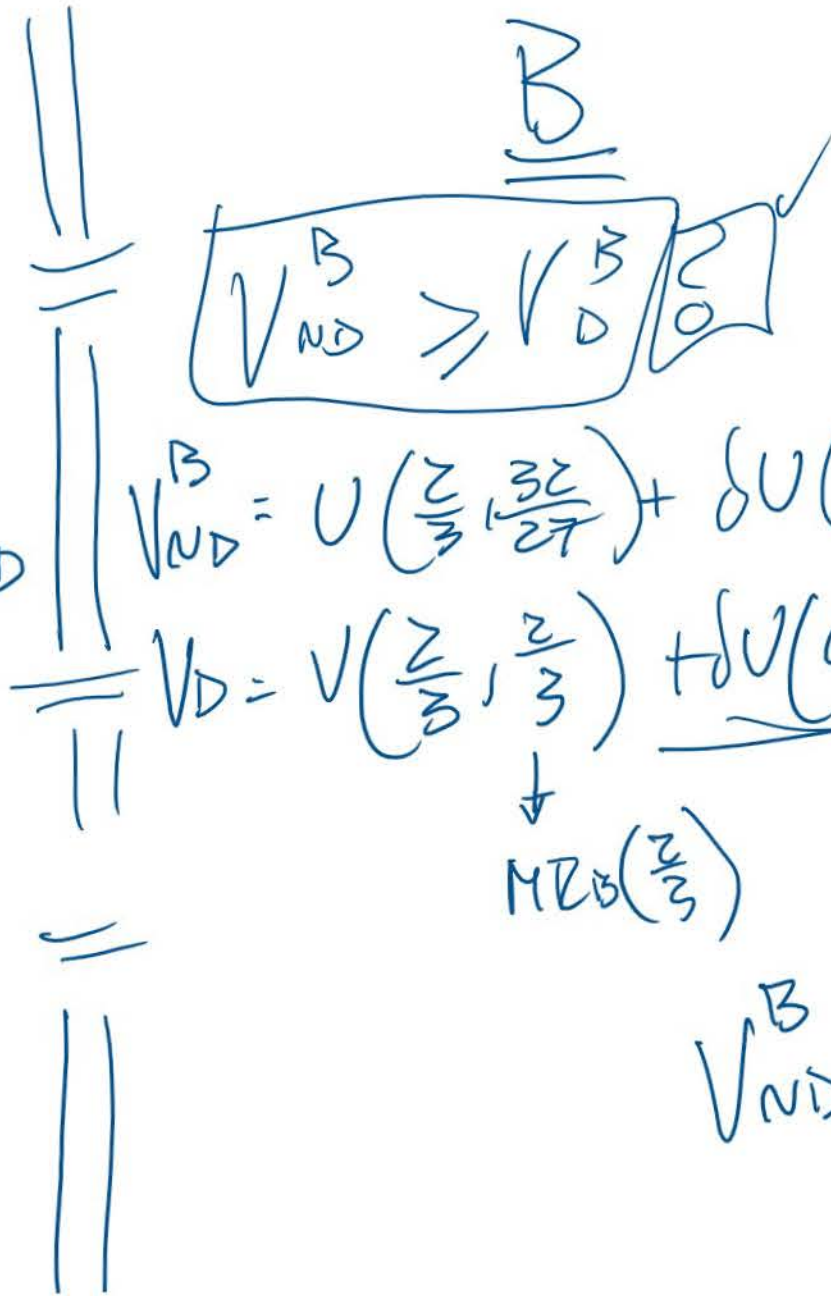 B
V_ND^B ≥ V_D^B
V_ND^B = U(2/3, 32/27) + δU(
V_D = V(2/3, 2/3) + δU(
↓
MR_B(2/3)
V_ND^B